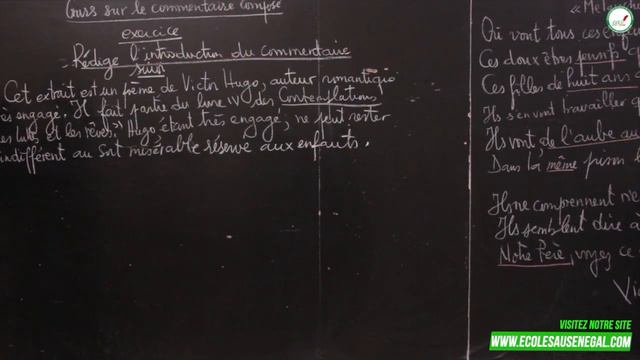 Cours sur le commentaire composé
exercice
Rédige l'introduction du commentaire
suivi
Cet extrait est un poème de Victor Hugo, auteur romantique
très engagé. Il fait partie du livre IV des Contemplations
les luttes et les rêves. Hugo étant très engagé, ne peut rester
indifférent au sort misérable réservé aux enfants.
« Melancho
Où vont tous ces enfan
Ces doux êtres pensifs
Ces filles de huit ans
Ils s'en vont travailler
Ils vont, de l'aube au
Dans la même prison
Ils ne comprennent rie
Ils semblent dire à
Notre Père, voyez ce
Vic
VISITEZ NOTRE SITE
WWW.ECOLESAUSENEGAL.COM